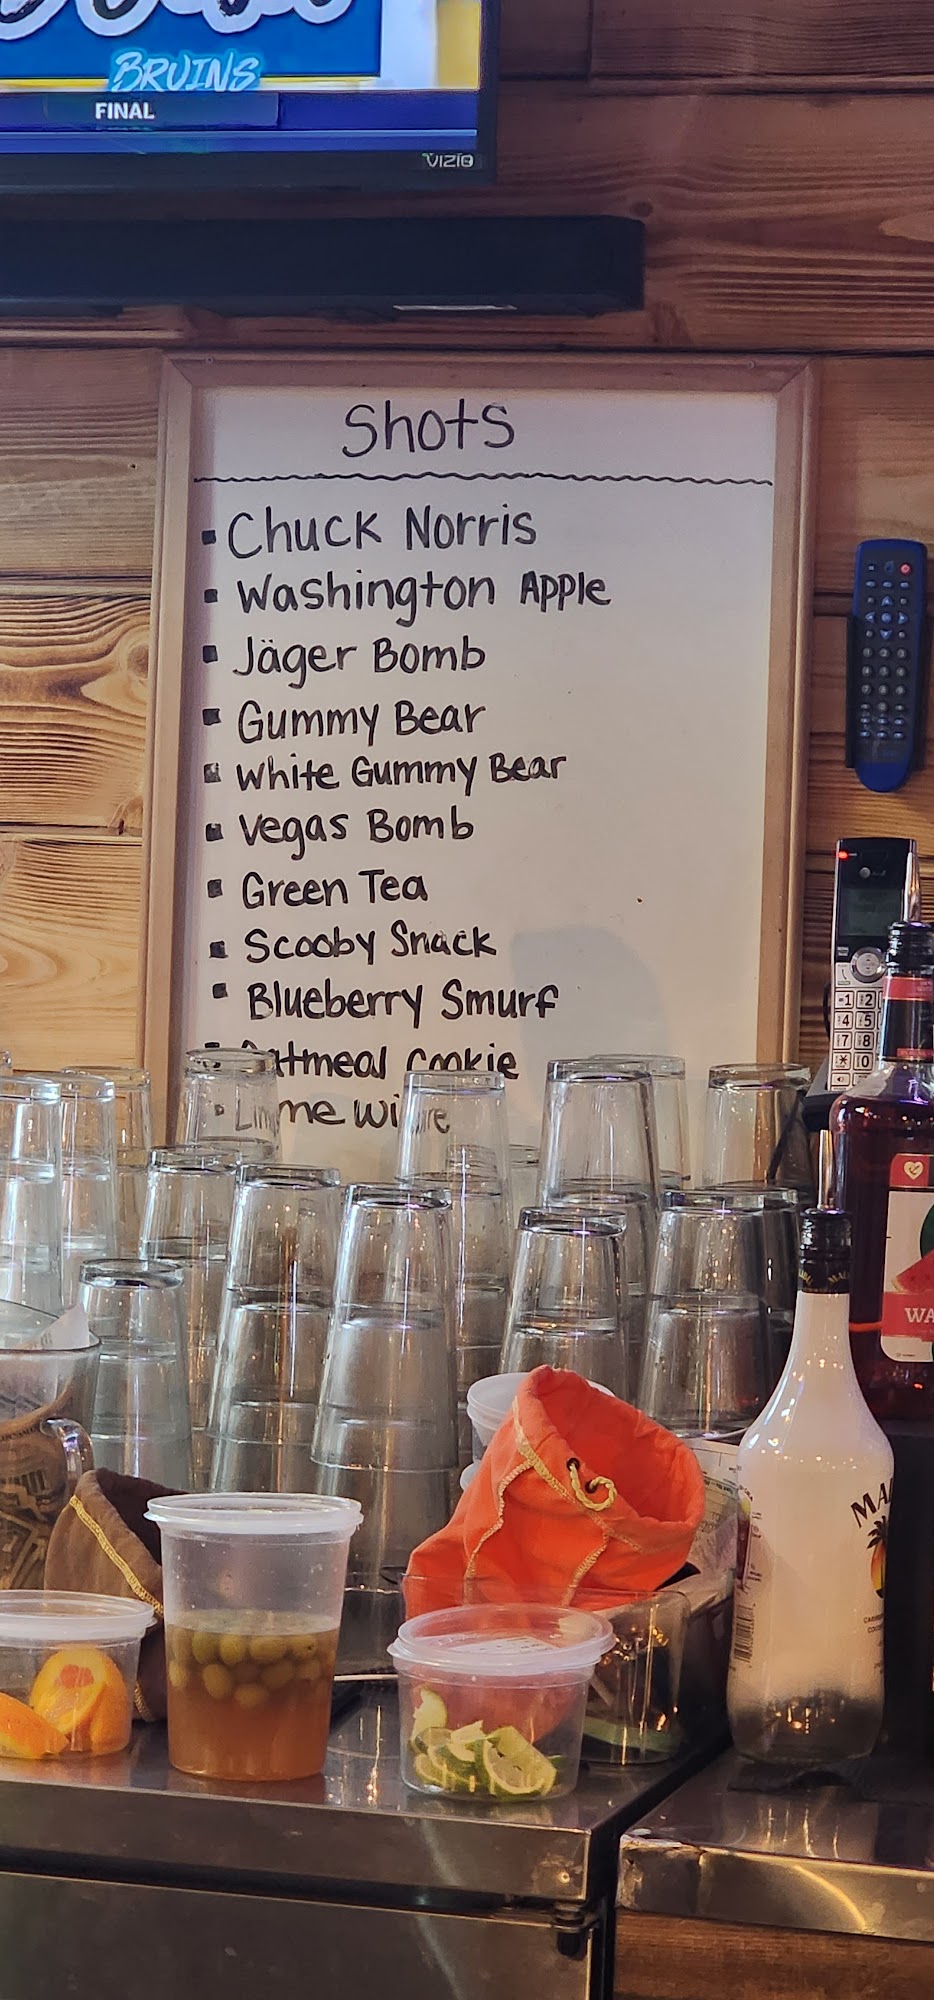 BRUINS
FINAL
VIZIO
Shots
Chuck Norris
Washington Apple
Jäger Bomb
Gummy Bear
White Gummy Bear
Vegas Bomb
Green Tea
Scooby Snack
Blueberry Smurf
Oatmeal Cookie
AT&T
1 2
4 5
7 8
* 0
WA
MA